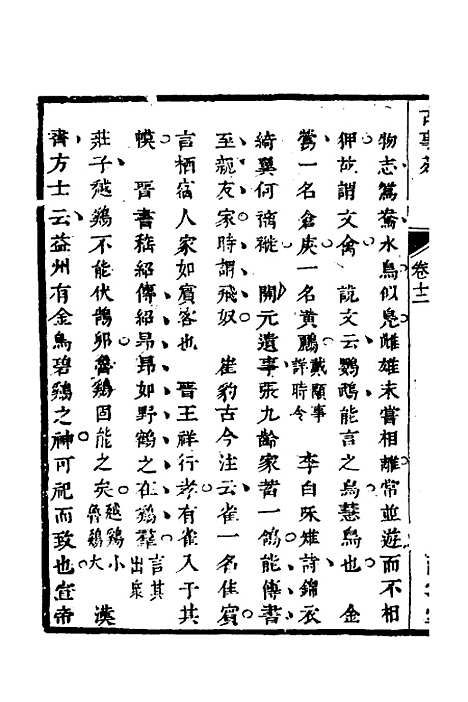 卷十二
物志鴛鴦水鳥似鳧雌雄未嘗相離常並遊而不相
狎故謂文禽　說文云鸚鵡能言之鳥慧鳥也　金
鶯一名倉庚一名黃鸝戴顒事詳時令　李白咏雉詩錦衣
綺翼何䙰褷　開元遺事張九齡家蓄一鴿能傳書
至親友家時謂飛奴　崔豹古今注云雀一名佳賓
言栖宿人家如賓客也　晉王祥行孝有雀入于其
幙　晉書嵇紹傳紹昻昻如野鶴之在鷄羣言其出衆
莊子越鷄不能伏鵠卵魯鷄固能之矣越鷄小魯鷄大　漢
書方士云益州有金馬碧鷄之神可祀而致也宣帝